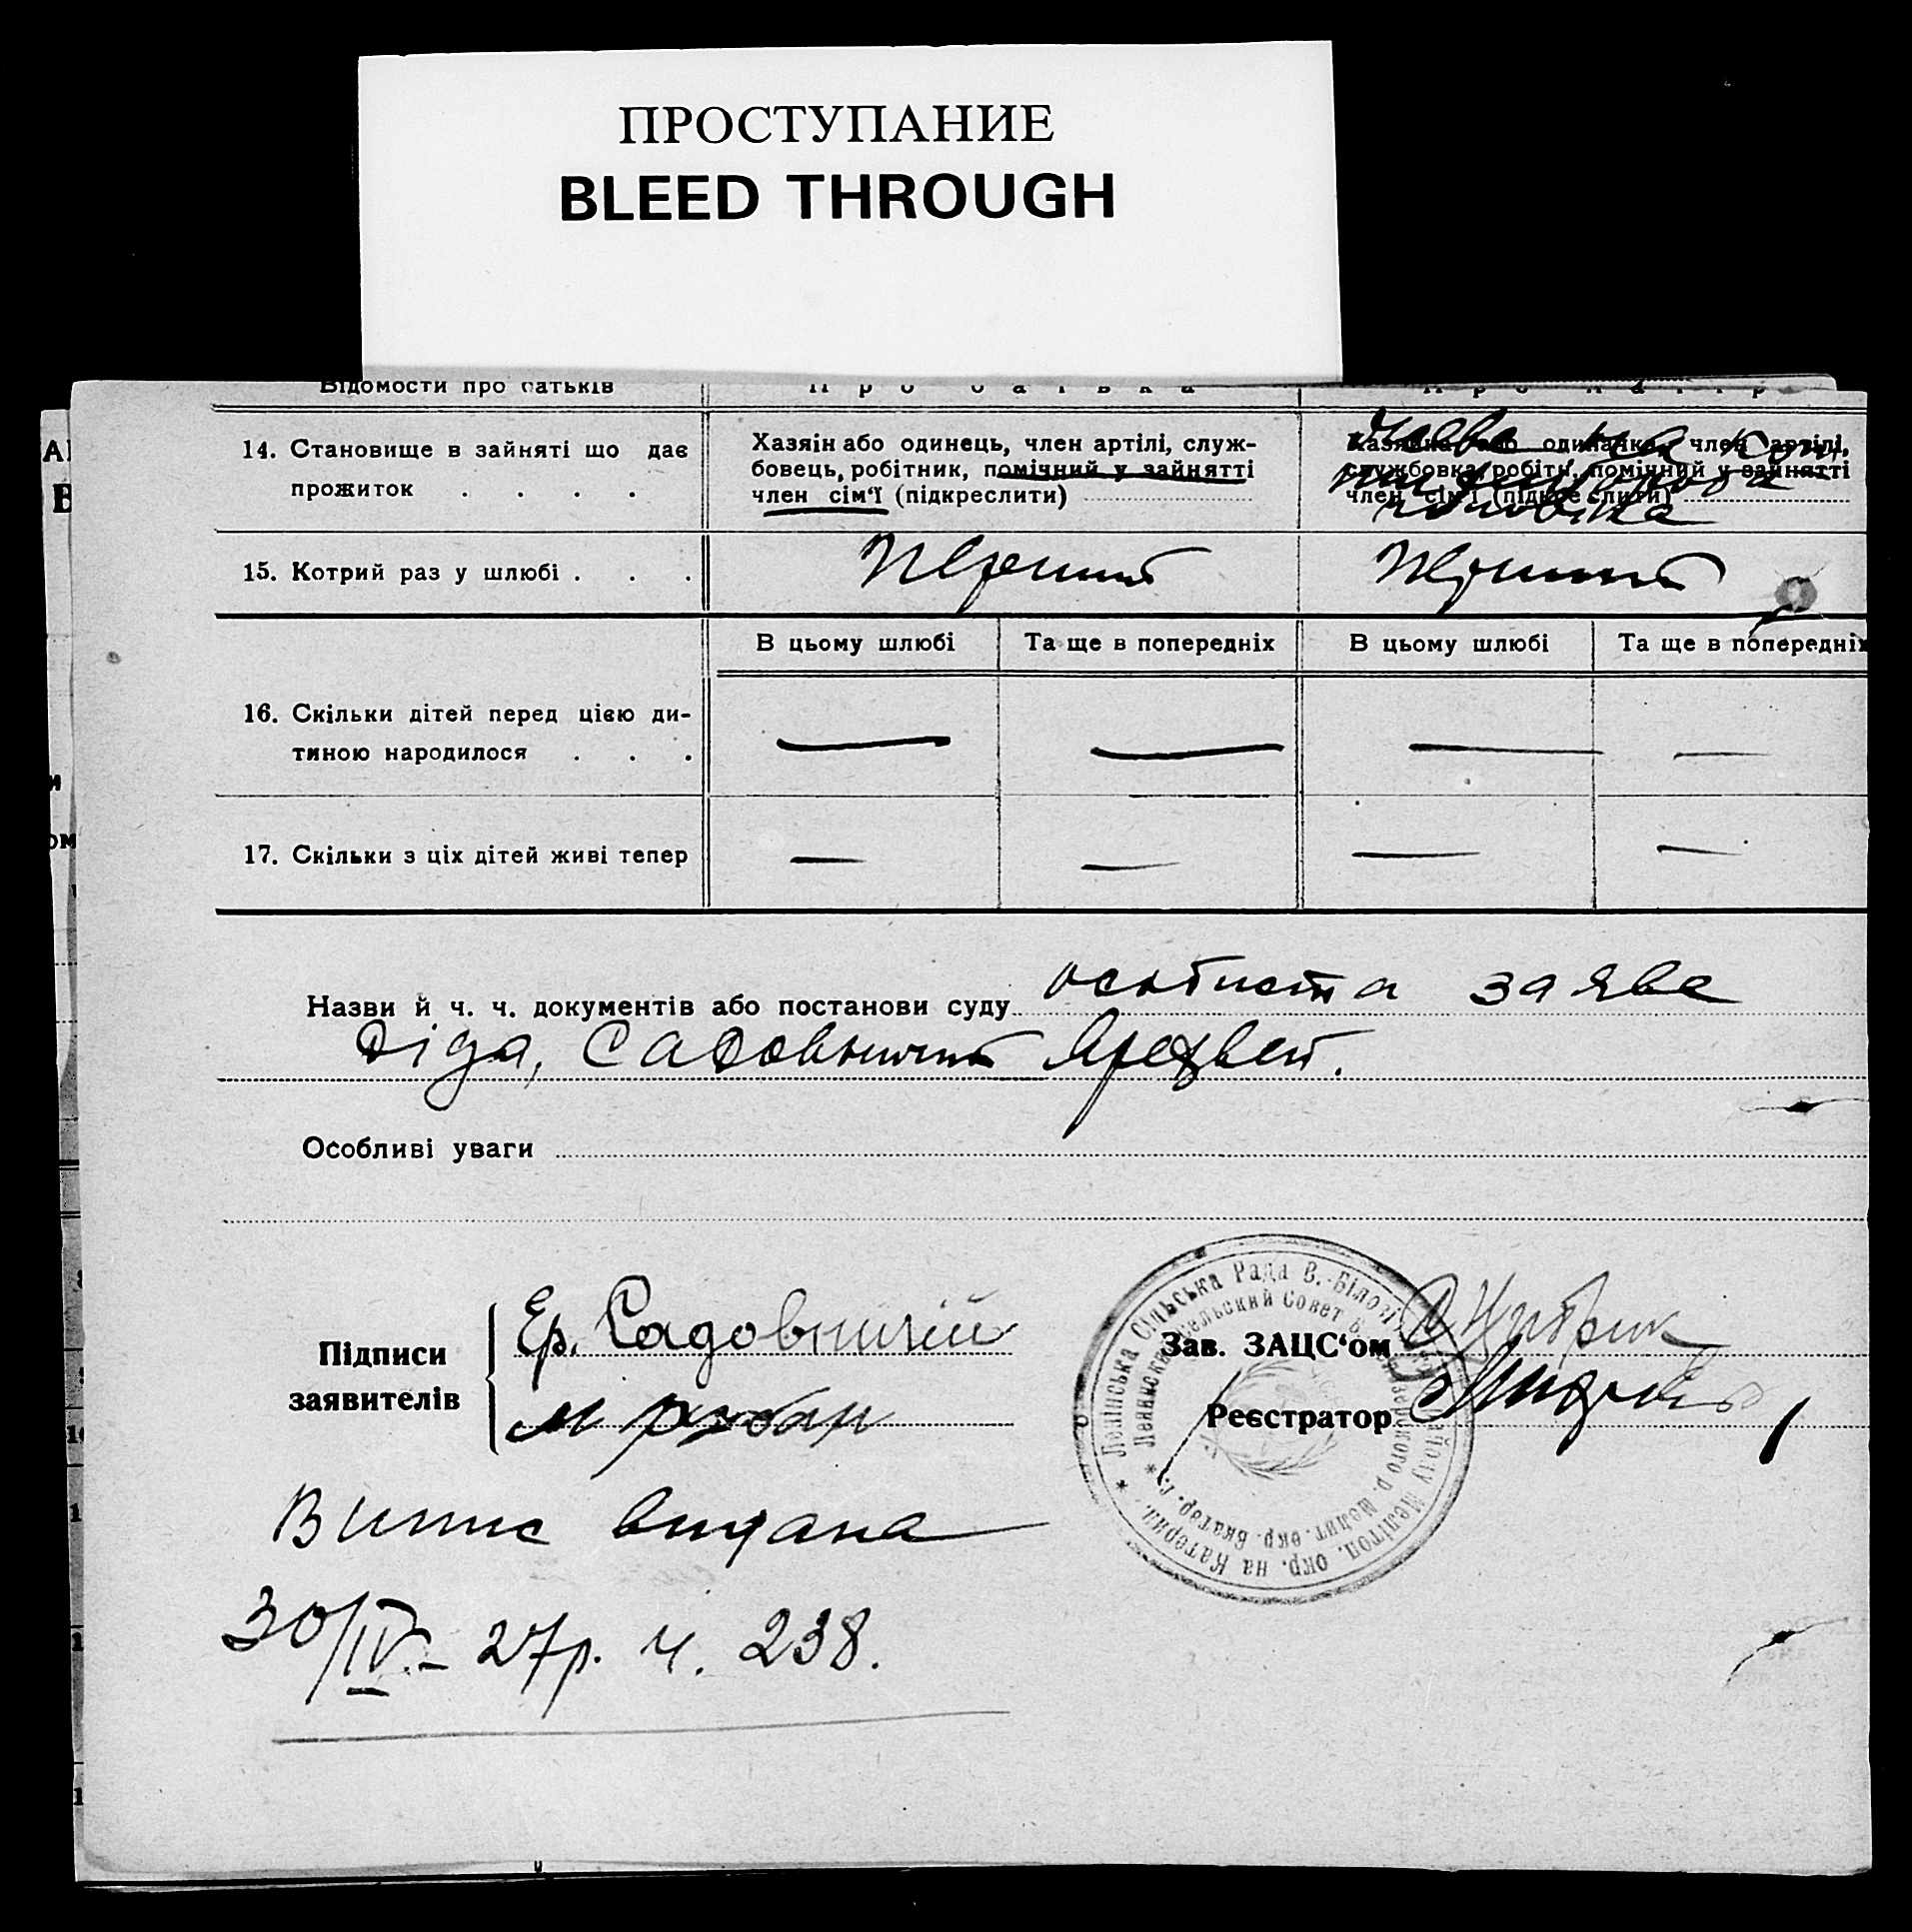 ПРОСТУПАНИЕ
BLEED THROUGH
Відомости про батьків
Про батька
14. Становище в зайняті що дає
прожиток . . . .
Хазяїн або одинець, член артілі, служ-
бовець, робітник, помічний у зайнятті
член сім'ї (підкреслити)
Хазяйка або одиначка, член артілі,
службовка робітн, помічний у зайнятті
член сім'ї (підкреслити)
15. Котрий раз у шлюбі . . .
Перший
Перший
В цьому шлюбі
Та ще в попередніх
В цьому шлюбі
Та ще в попередніх
16. Скільки дітей перед цією ди-
тиною народилося . . .
17. Скільки з ціх дітей живі тепер
Назви й ч. ч. документів або постанови суду особиста заява
діда, Садовничий
Особливі уваги
Підписи
заявителів
Ер. Садовничий
Зав. ЗАЦС'ом
Реєстратор
Ленінська Сільська Рада В.-Білозі
Мелітоп. окр. на Катерин.
сельский Совет
Мелит. окр. Екатер. г.
Випис видана
30/IV.- 27р. ч. 238.